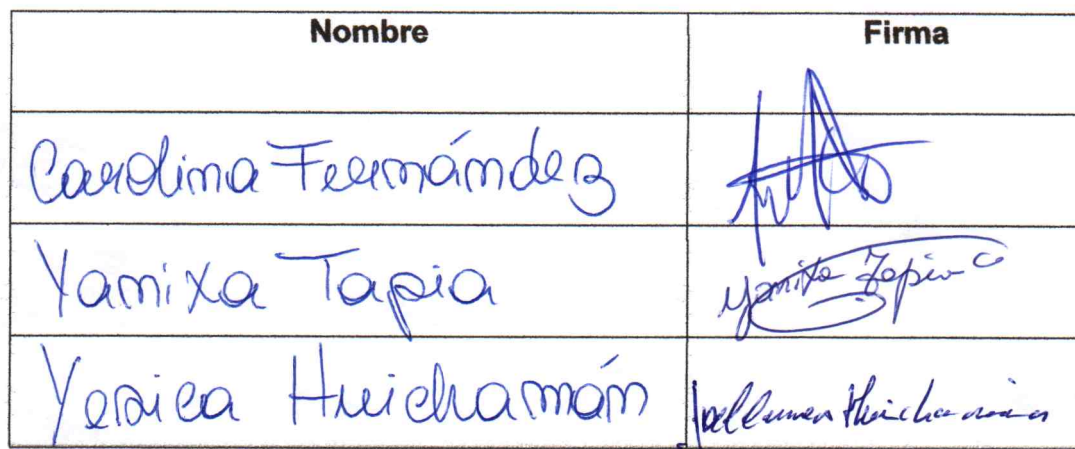 Nombre Firma
Carolina Fernández
Yanixa Tapia Yanixa Tapia C
Yesica Huichamán Huichaman